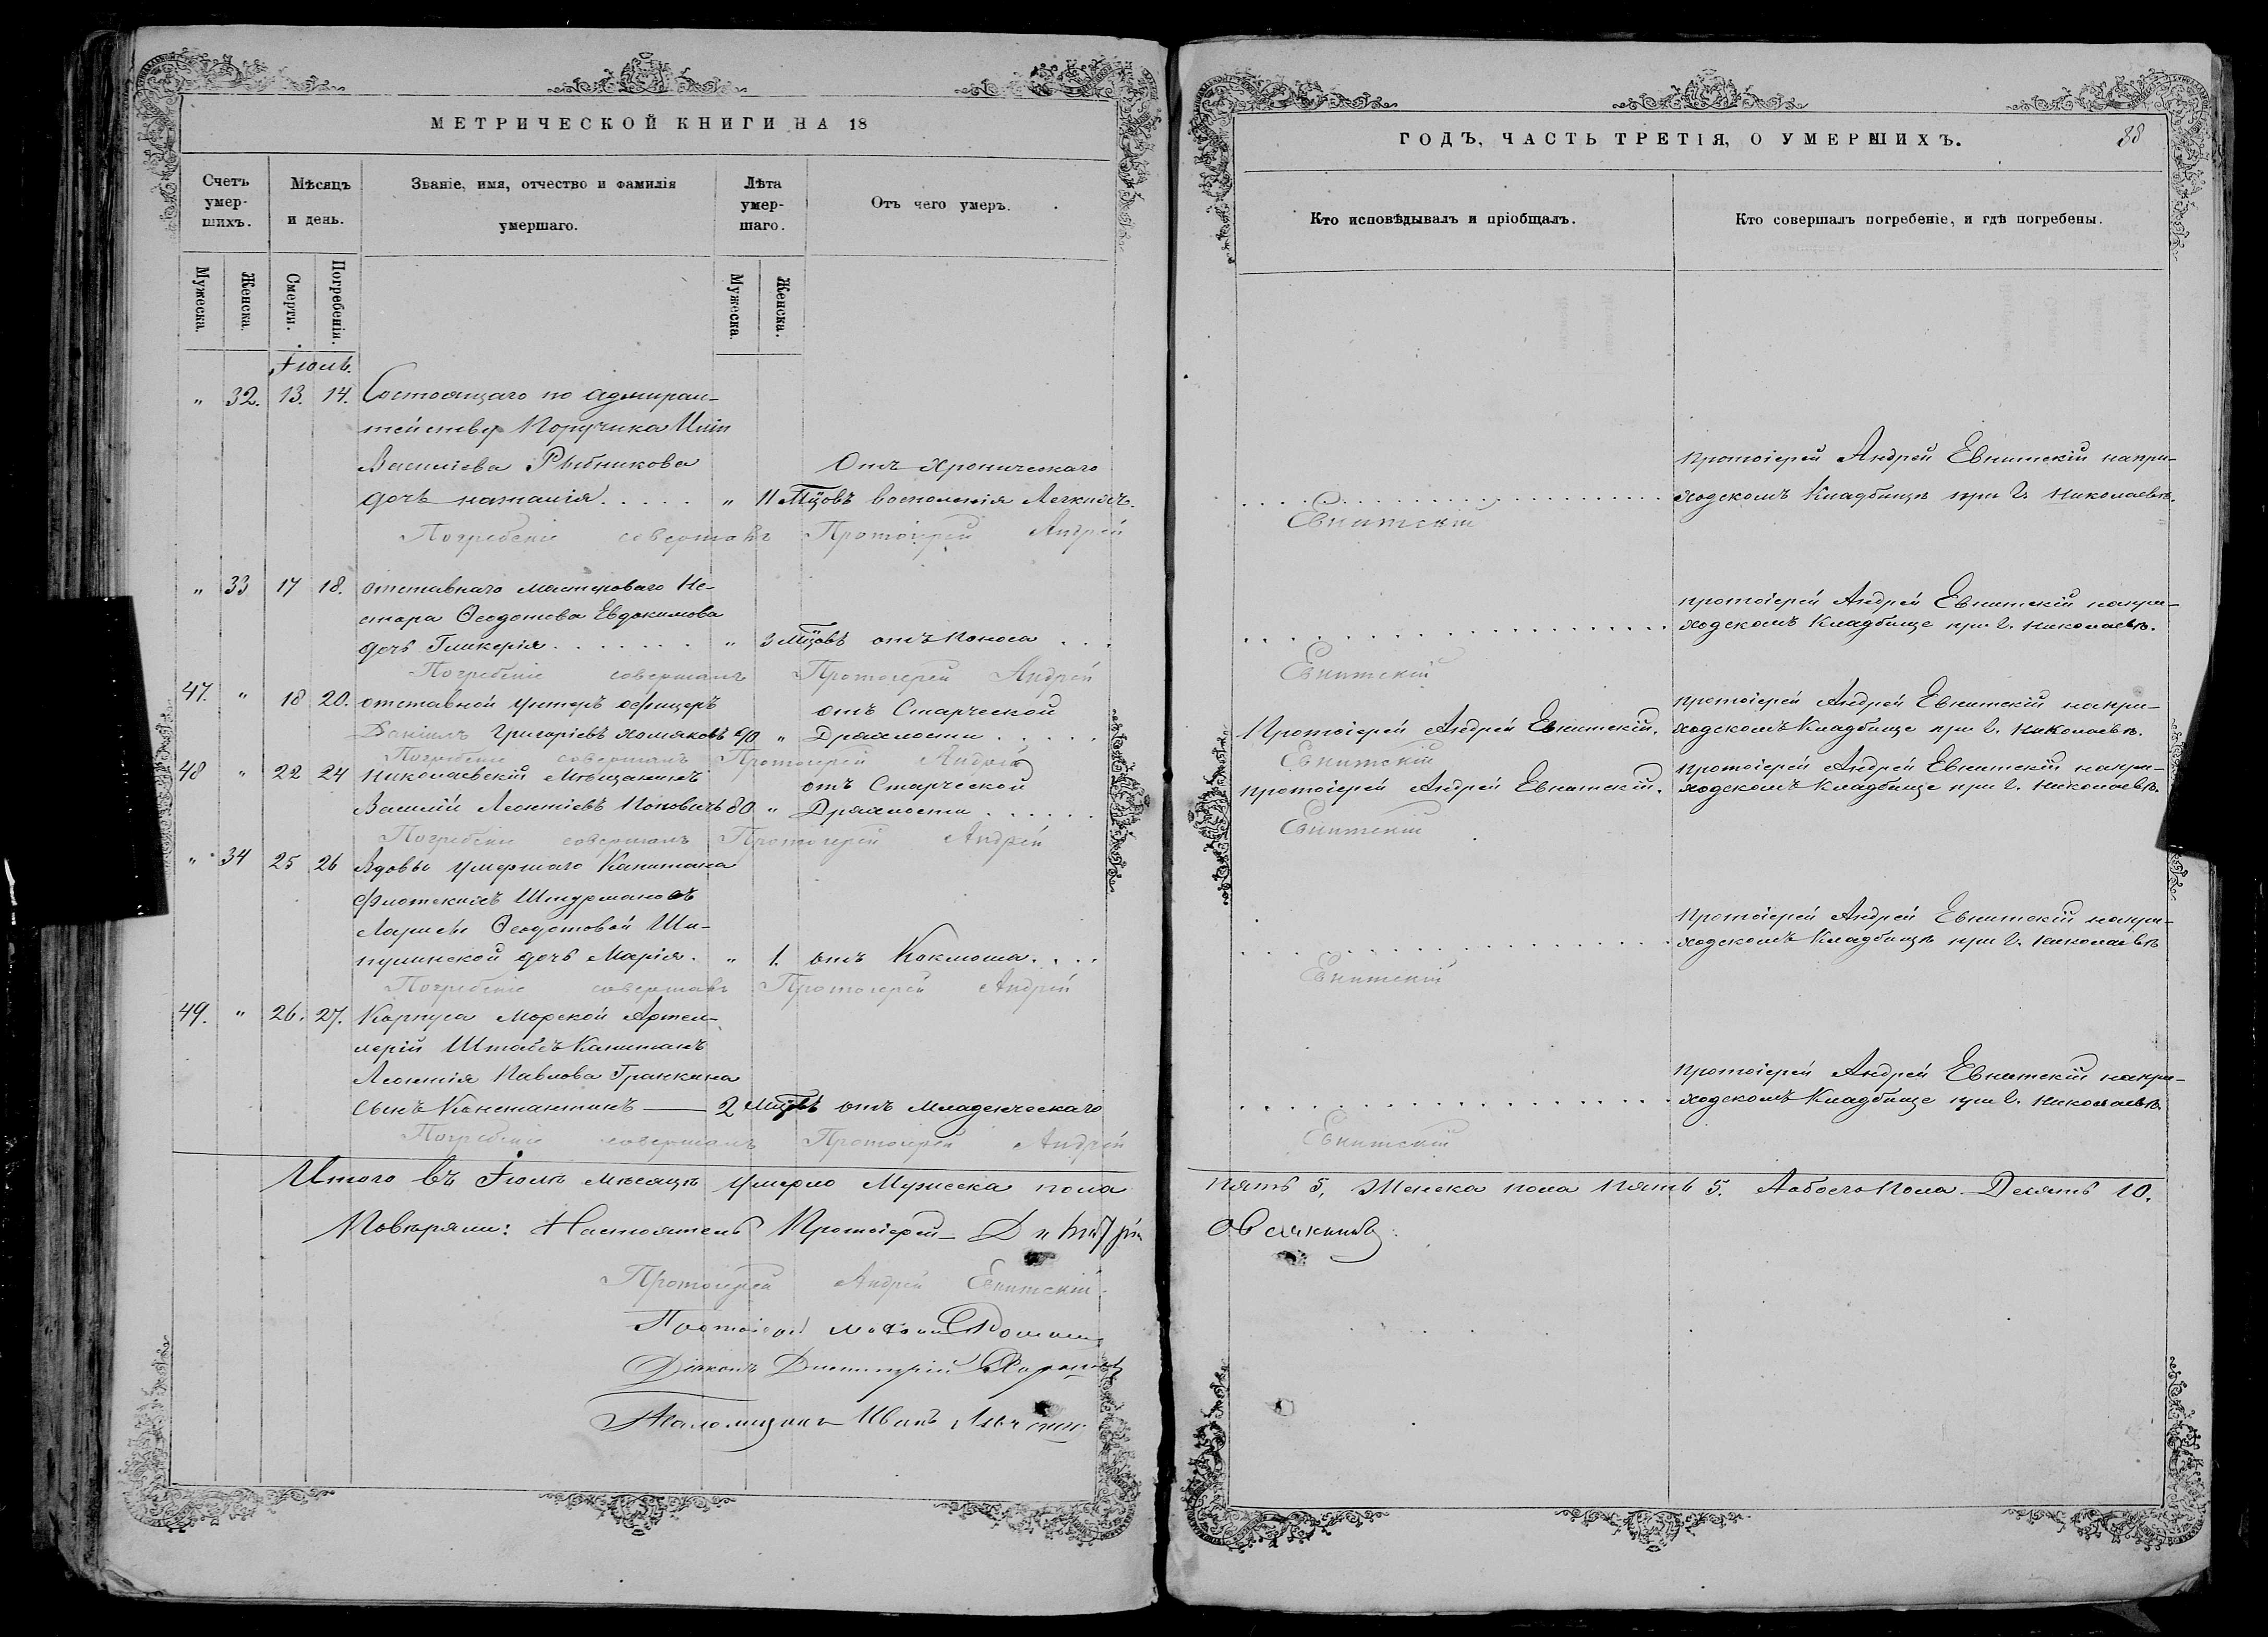 МЕТРИЧЕСКОЙ КНИГИ НА 18
Счетъ умер-шихъ.
Мѣсяцъ и день.
Званіе, имя, отчество и фамилія умершаго.
Лѣта умер-шаго.
Отъ чего умеръ.
Мужеска.
Женска.
Смерти.
Погребенія.
Мужеска.
Женска.
Іюль.
" 32. 13. 14. Состоящаго по адмирал-
тейству Поручика
Василіева Рыбникова Отъ хроническаго
дочь Наталія . . . . . " 11 Мцовъ воспаленія Легкихъ.
Погребеніе совершалъ Протоіерей Андрей
" 33 17 18. отставнаго мастероваго Не-
стора Ѳеодотова Евдокимова
дочь Гликерія . . . . . . . " 3 Мцовъ отъ Поноса . . .
Погребеніе совершалъ Протоіерей Андрей
47. " 18 20. отставной унтеръ офицеръ отъ Старческой
Даніилъ Григоріевъ Хомяковъ 90 " Дряхлости . . . . .
Погребеніе совершалъ Протоіерей Андрей
48 " 22 24 Николаевскій Мѣщанинъ отъ Старческой
Василій Леонтіевъ Поповичъ 80 " Дряхлости . . . . . .
Погребеніе совершалъ Протоіерей Андрей
" 34 25 26 Вдовы умершаго Капитана
флотскихъ Штурмановъ
Ларисы Ѳеодотовой Ши-
пулинской дочь Марія. " 1. отъ Коклюша. . . .
Погребеніе совершалъ Протоіерей Андрей
49. " 26. 27. Корпуса Морской Артил-
лерій Штабсъ Капитанъ
Леонтія Павлова Гранкина
сынъ Константинъ — 2 Мцъ отъ Младенческаго
Погребеніе совершалъ Протоіерей Андрей
Итого въ Іюлѣ мѣсяцѣ умерло Мужеска пола
Повѣряли: Настоятель Протоіерей
Протоіерей Андрей Евнитскій.
Діаконъ Димитрій
Псаломщикъ Иванъ
ГОДЪ, ЧАСТЬ ТРЕТІЯ, О УМЕРШИХЪ.
88
Кто исповѣдывалъ и пріобщалъ.
Кто совершалъ погребеніе, и гдѣ погребены.
протоіерей Андрей Евнитскій напри-
ходскомъ Кладбищѣ при г. Николаевѣ.
Евнитскій
протоіерей Андрей Евнитскій напри-
ходскомъ Кладбище при г. Николаевѣ.
Евнитскій
протоіерей Андрей Евнитскій напри-
Протоіерей Андрей Евнитскій. ходскомъ Кладбище при г. Николаевѣ.
Евнитскій
протоіерей Андрей Евнитскій напри-
протоіерей Андрей Евнитскій. ходскомъ Кладбище при г. Николаевѣ.
Евнитскій
протоіерей Андрей Евнитскій напри-
ходскомъ Кладбищѣ при г. Николаевѣ
Евнитскій
протоіерей Андрей Евнитскій напри-
ходскомъ Кладбище при г. Николаевѣ.
Евнитскій
пять 5, Женска пола пять 5. Аобоего Пола — Десять 10.